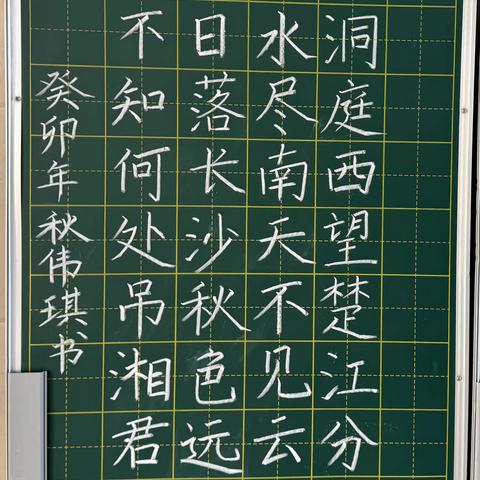 洞庭西望楚江分
水尽南天不见云
日落长沙秋色远
不知何处吊湘君
癸卯年秋伟琪书